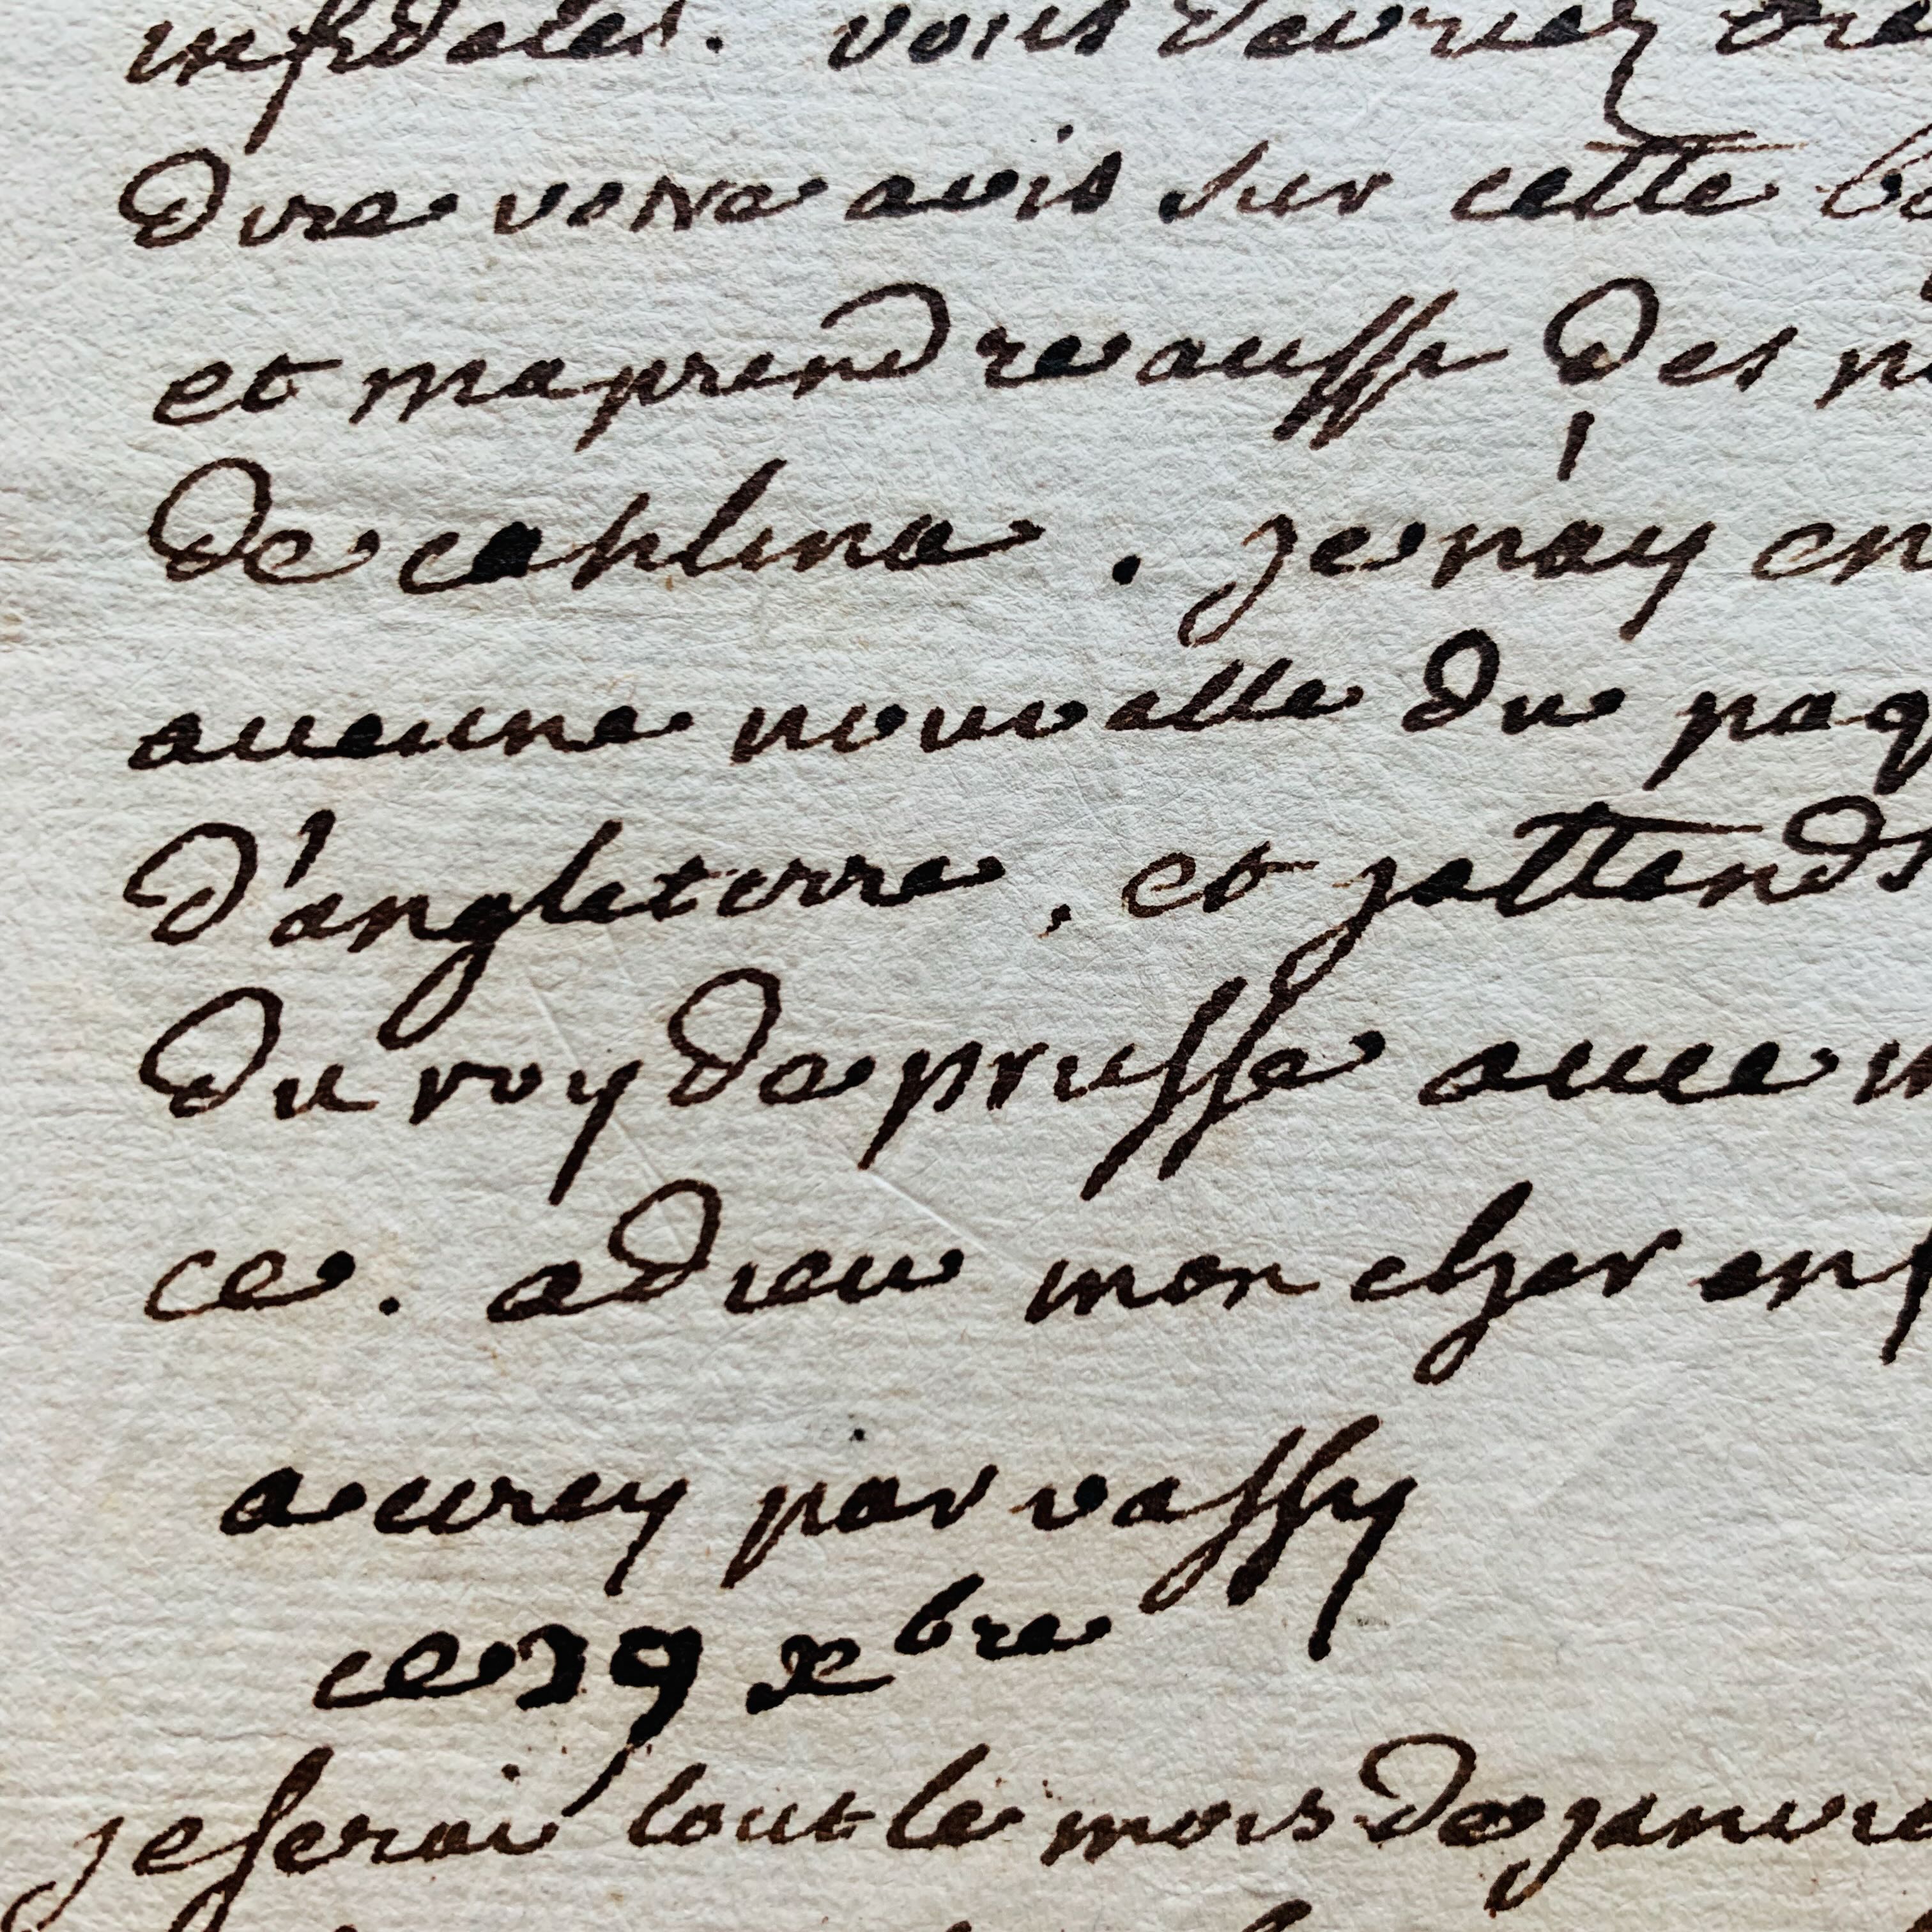 infideles. vous devriez
dire votre avis sur cette
et maprendre aussi des
de catilina. je n'ay en
aucune nouvelle du paq
d'angleterre, et jattends
du roy de prusse avec
ce. adieu mon cher enf
a cirey par vassy
ce 29 xbre
je serai tout le mois de janvie